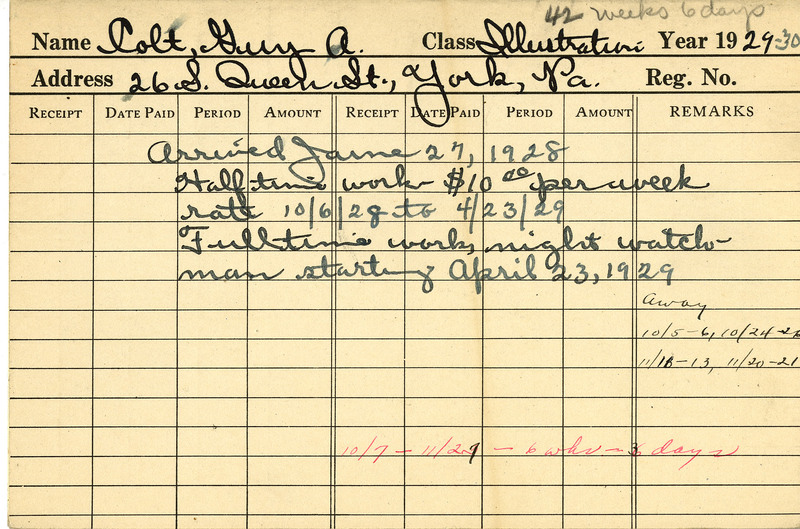 42 weeks 6 days
Name Colt, Guy A. Class Illustration Year 1929-30
Address 26 S. Queen St., York, Pa. Reg. No.
RECEIPT DATE PAID PERIOD AMOUNT RECEIPT DATE PAID PERIOD AMOUNT REMARKS
Arrived June 27, 1928
Half time work $10 00 per week
rate 10/6/28 to 4/23/29
Full time work, night watch-
man starting April 23, 1929
Away
10/5-6, 10/24-
13, 11/20-21
10/7 - 11/29 - 6 wks - 3 days